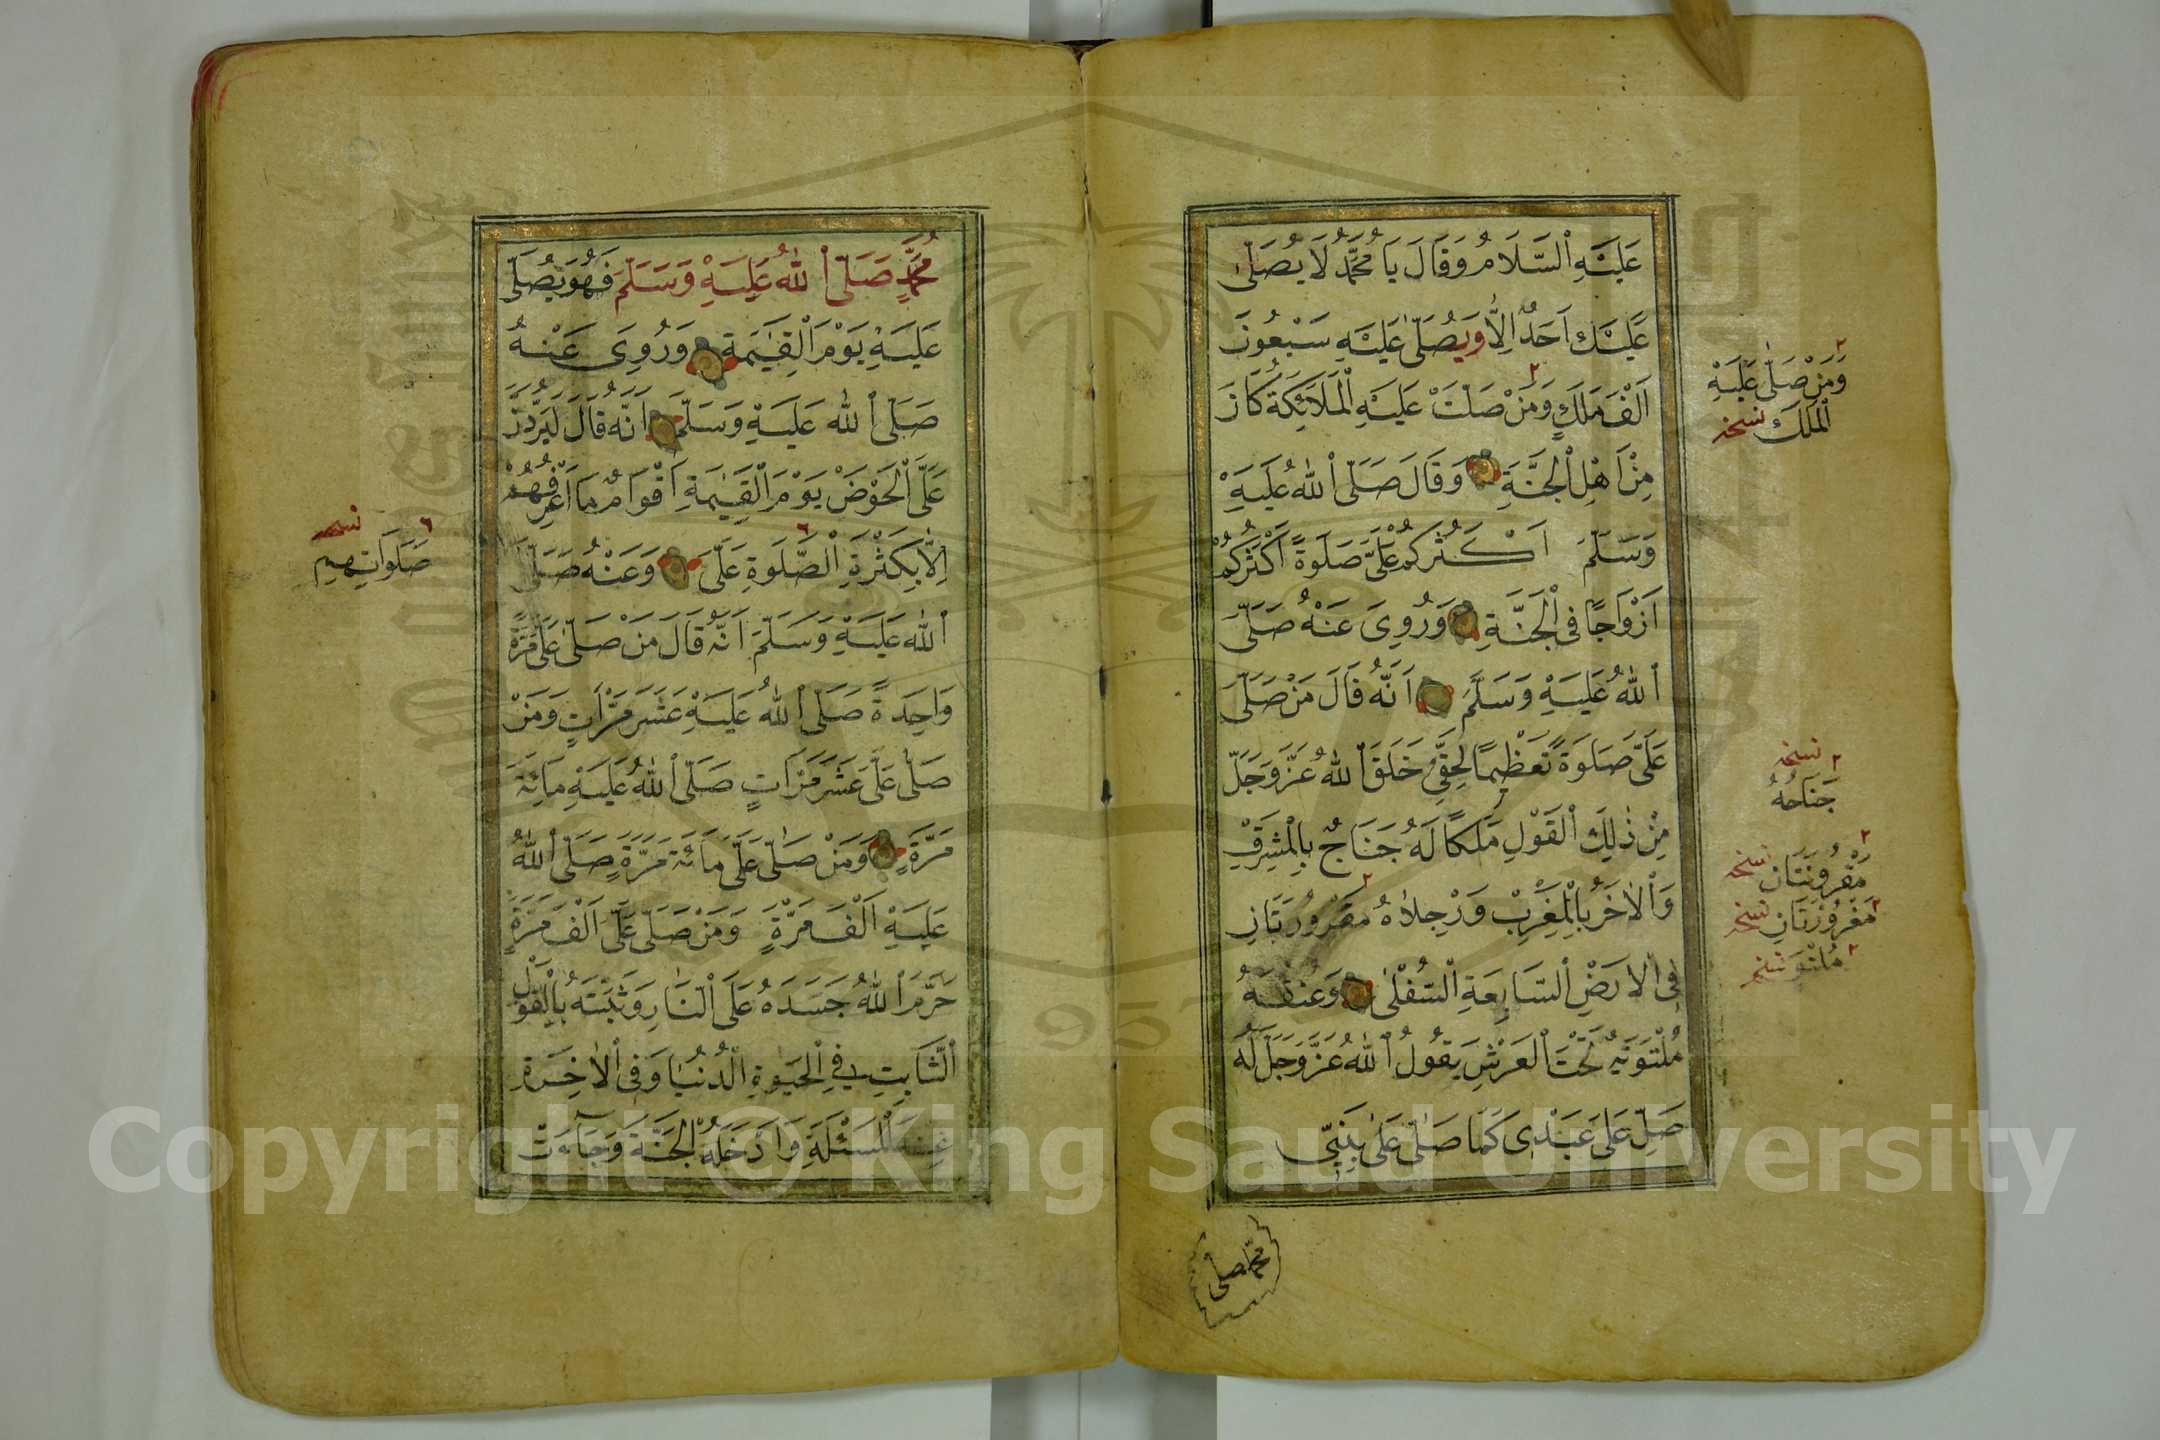 عَلَيْهِ ٱلسَّلَامُ وَقَالَ يَا مُحَمَّدُ لَا يُصَلِّى
عَلَيْكَ اَحَدٌ اِلَّا وَيُصَلِّى عَلَيْهِ سَبْعُونَ
اَلْفَ مَلَكٍ وَمَنْ صَلَّتْ عَلَيْهِ ٱلْمَلَائِكَةُ كَانَ
مِنْ اَهْلِ ٱلْجَنَّةِ وَقَالَ صَلَّى ٱللّٰهُ عَلَيْهِ
وَسَلَّمَ اَكْثَرُكُمْ عَلَىَّ صَلَوةً اَكْثَرُكُمْ
اَزْوَاجًا فِى ٱلْجَنَّةِ وَرُوِىَ عَنْهُ صَلَّى
ٱللّٰهُ عَلَيْهِ وَسَلَّمَ اَنَّهُ قَالَ مَنْ صَلَّى
عَلَىَّ صَلَوةً تَعْظِيمًا لِحَقِّى خَلَقَ ٱللّٰهُ عَزَّ وَجَلَّ
مِنْ ذٰلِكَ ٱلْقَوْلِ مَلَكًا لَهُ جَنَاحٌ بِالْمَشْرِقِ
وَٱلْاٰخَرُ بِالْمَغْرِبِ وَرِجْلَاهُ مَقْرُورَتَانِ
فِى ٱلْاَرْضِ ٱلسَّابِعَةِ ٱلسُّفْلٰى وَعُنُقُهُ
مُلْتَوِيَةٌ تَحْتَ ٱلْعَرْشِ يَقُولُ ٱللّٰهُ عَزَّ وَجَلَّ لَهُ
صَلِّ عَلَى عَبْدِى كَمَا صَلَّى عَلَى نَبِيِّى
٢
وَمَنْ صَلَّى عَلَيْهِ
ٱلْمَلَكُ نسخه
نسخه ٢
جَنَاحُهُ
٢
مَقْرُونَتَانِ نسخه
٢ مَغْرُوزَتَانِ نسخه
٢ مُلْتَوٍ نسخه
محمد صلى
مُحَمَّدٍ صَلَّى ٱللّٰهُ عَلَيْهِ وَسَلَّمَ فَهُوَ يُصَلِّى
عَلَيْهِ يَوْمَ ٱلْقِيٰمَةِ وَرُوِىَ عَنْهُ
صَلَّى ٱللّٰهُ عَلَيْهِ وَسَلَّمَ اَنَّهُ قَالَ لَيَرِدَنَّ
عَلَىَّ ٱلْحَوْضَ يَوْمَ ٱلْقِيٰمَةِ اَقْوَامٌ مَا اَعْرِفُهُمْ
اِلَّا بِكَثْرَةِ ٱلصَّلَوةِ عَلَىَّ وَعَنْهُ صَلَّى
ٱللّٰهُ عَلَيْهِ وَسَلَّمَ اَنَّهُ قَالَ مَنْ صَلَّى عَلَىَّ مَرَّةً
وَاحِدَةً صَلَّى ٱللّٰهُ عَلَيْهِ عَشَرَ مَرَّاتٍ وَمَنْ
صَلَّى عَلَىَّ عَشَرَ مَرَّاتٍ صَلَّى ٱللّٰهُ عَلَيْهِ مِائَةَ
مَرَّةٍ وَمَنْ صَلَّى عَلَىَّ مِائَةَ مَرَّةٍ صَلَّى ٱللّٰهُ
عَلَيْهِ اَلْفَ مَرَّةٍ وَمَنْ صَلَّى عَلَىَّ اَلْفَ مَرَّةٍ
حَرَّمَ ٱللّٰهُ جَسَدَهُ عَلَى ٱلنَّارِ وَثَبَّتَهُ بِالْقَوْلِ
ٱلثَّابِتِ فِى ٱلْحَيٰوةِ ٱلدُّنْيَا وَفِى ٱلْاٰخِرَةِ
عِنْدَ ٱلْمَسْئَلَةِ وَاَدْخَلَهُ ٱلْجَنَّةَ وَجَآءَتْ
٦ نسخه
صَلَوَاتِهِمْ
Copyright © King Saud University
1957